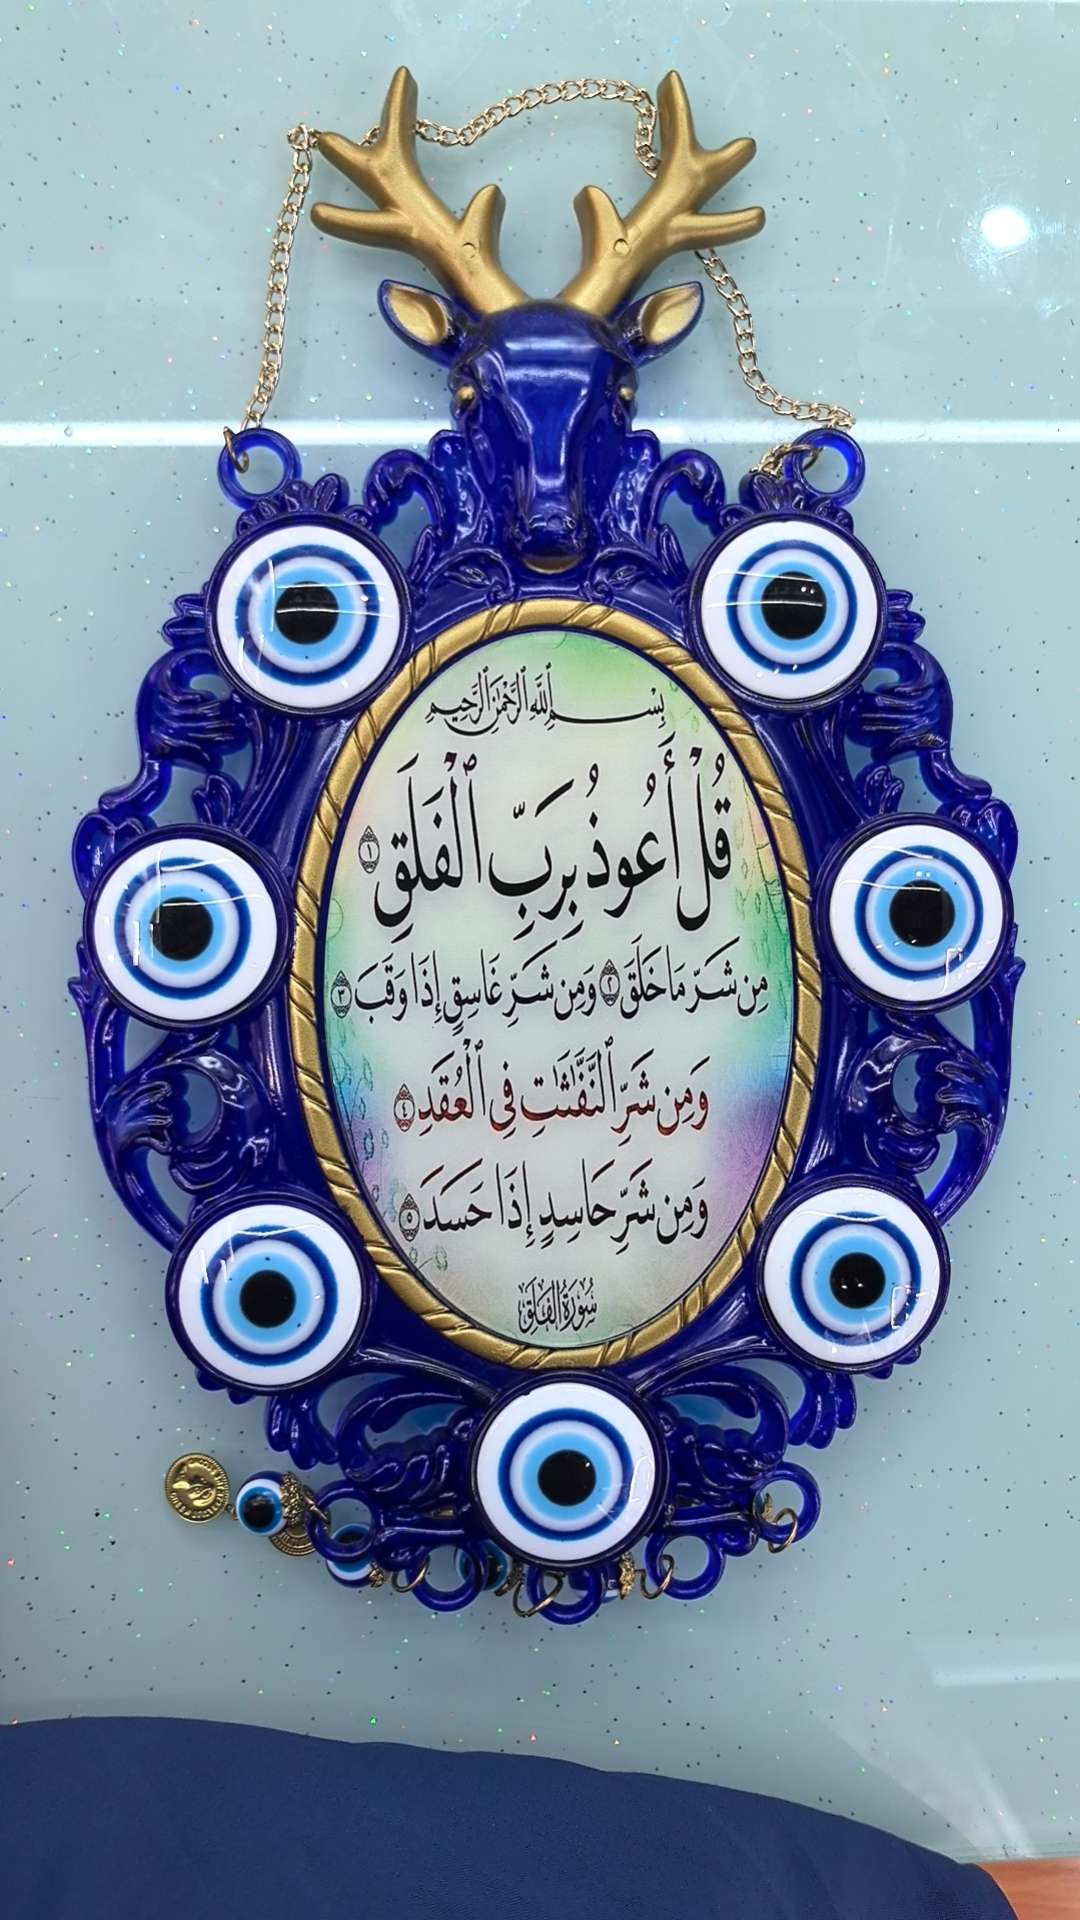 بِسْمِ ٱللَّهِ ٱلرَّحْمَٰنِ ٱلرَّحِيمِ
قُلْ أَعُوذُ بِرَبِّ ٱلْفَلَقِ ١
مِن شَرِّ مَا خَلَقَ ٢ وَمِن شَرِّ غَاسِقٍ إِذَا وَقَبَ ٣
وَمِن شَرِّ ٱلنَّفَّٰثَٰتِ فِى ٱلْعُقَدِ ٤
وَمِن شَرِّ حَاسِدٍ إِذَا حَسَدَ ٥
سُورَةُ الْفَلَقِ